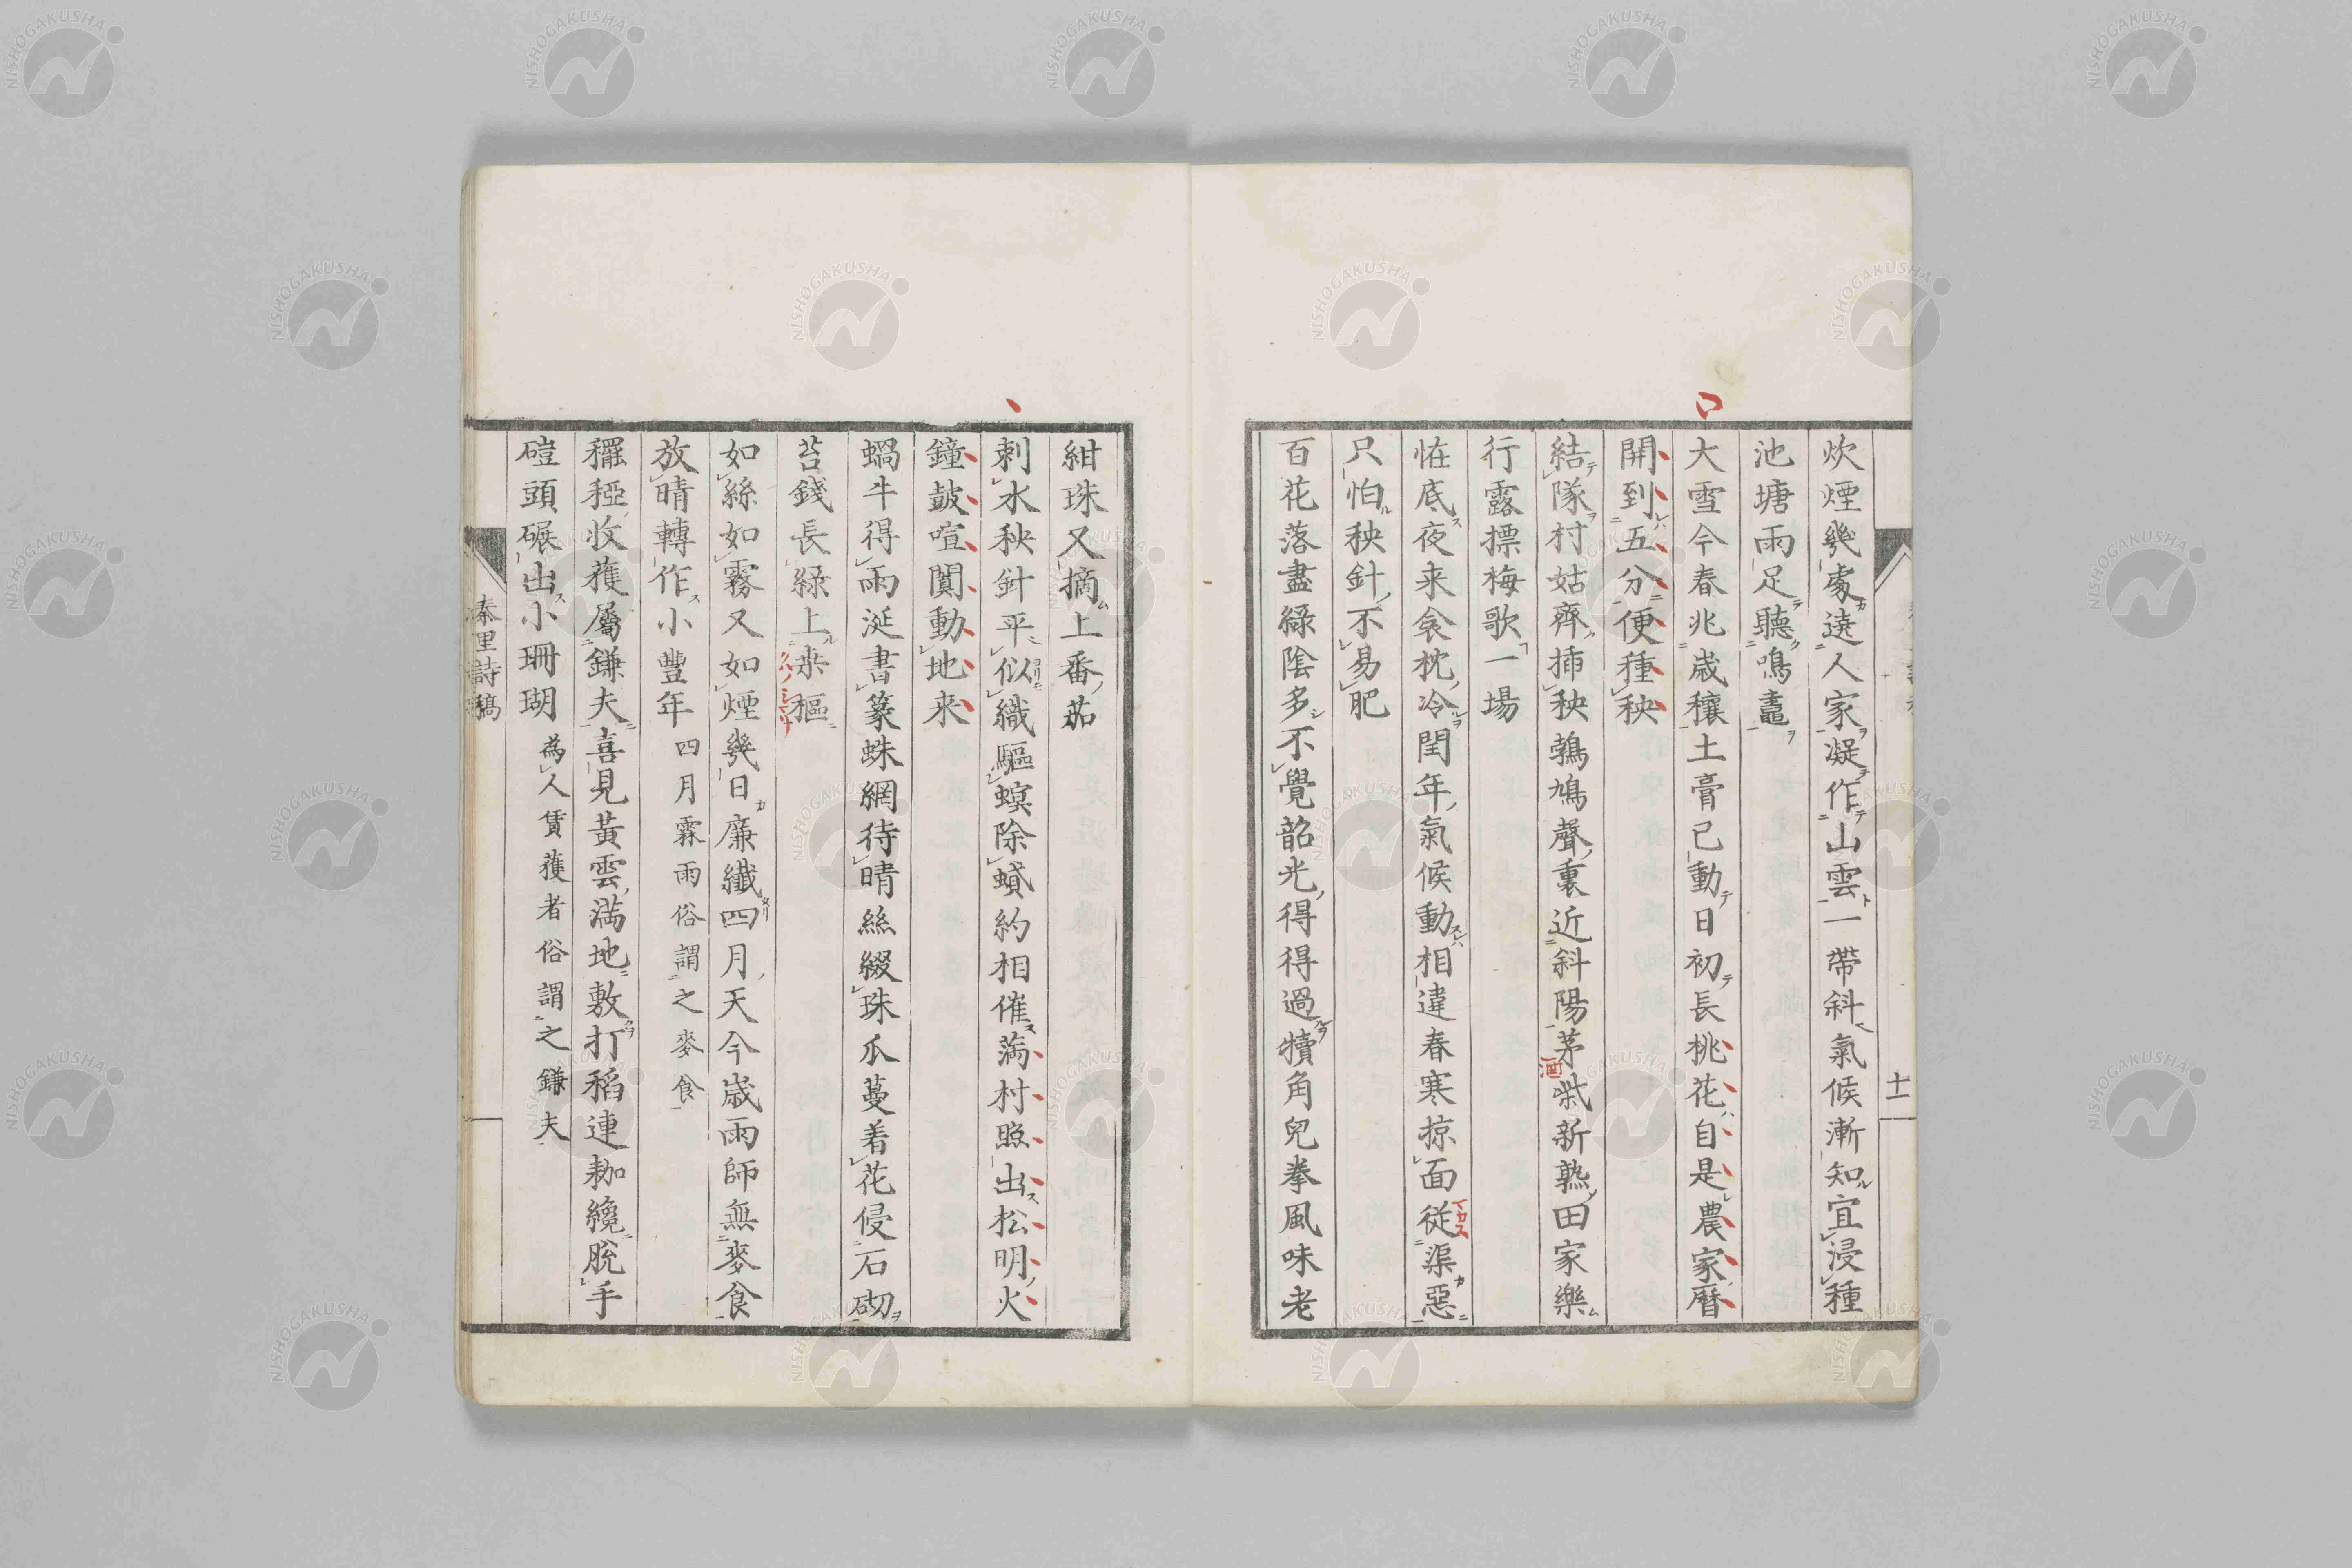 炊煙幾處遶人家凝作山雲一帶斜氣候漸知宜浸種
池塘雨足聽鳴鼃
大雪今春兆歲穰土膏已動日初長桃花自是農家曆
開到五分便種秧
結隊村姑齊插秧鵓鳩聲裏近斜陽茅
酒
新熟田家樂
行露摽梅歌一場
恠底夜来衾枕冷閏年氣候動相違春寒掠面從渠惡
只怕秧針不易肥
百花落盡綠陰多不覺韶光得得過犢角兒拳風味老
十一
紺珠又摘上番茄
刺水秧針平似織驅螟除蟘約相催滿村照出松明火
鐘皷喧闐動地来
蝸牛得雨涎書篆蛛網待晴絲綴珠瓜蔓着花侵石砌
苔錢長綠上枽樞
如絲如霧又如煙幾日廉纖四月天今歲雨師無麥食
放晴轉作小豐年 四月霖雨俗謂之麥食
䆉稏收穫屬鎌夫喜見黃雲滿地敷打稻連耞纔脫手
磑頭碾出小珊瑚 為人賃穫者俗謂之鎌夫
溱里詩稿
NISHOGAKUSHA